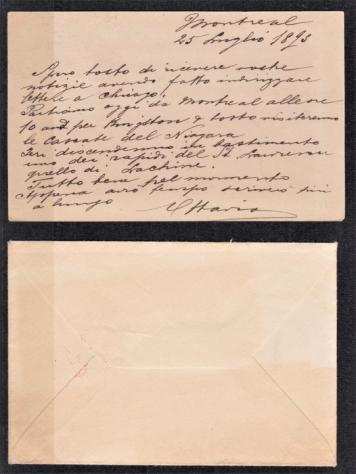 Montreal
25 Luglio 1893
Spero tosto di ricevere vostre
notizie avendo fatto indirizzare
lettere a Chicago.
Partiamo oggi da Montreal alle ore
10 ant per Kingston e tosto visiteremo
le Cascate del Niagara
Ieri discendemmo in bastimento
uno dei rapidi del St Lawrence
quello di Lachine.
Tutto bene pel momento
Appena avrò tempo scriverò più
a lungo